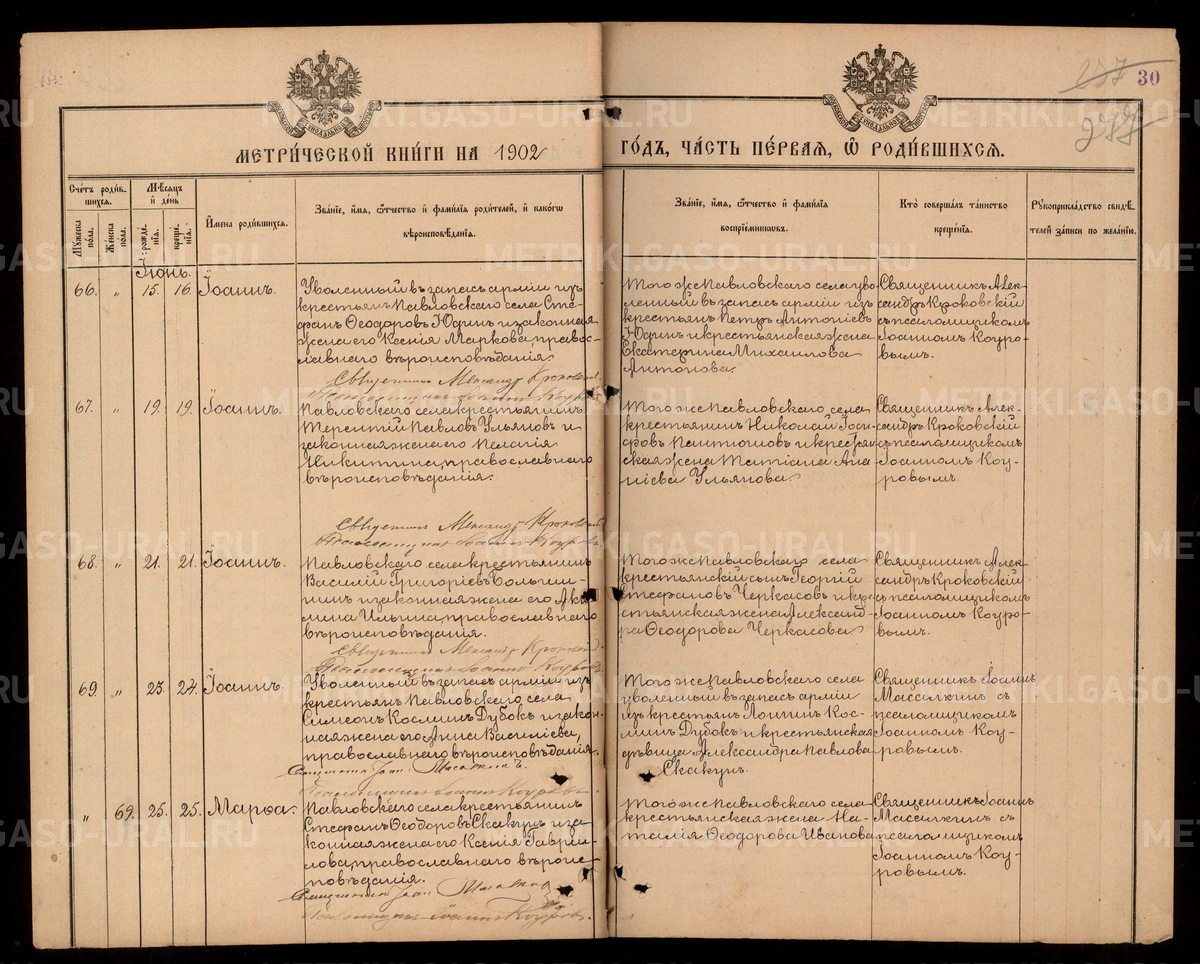 30
277
МЕТРИ́ЧЕСКОЙ КНИ́ГИ НА 1902
ГО́ДЪ, ЧА́СТЬ ПЕ́РВАЯ, Ѡ РОДИ́ВШИХСѦ.
Сче́тъ роди́в-
шихся.
Мѣ́сяцъ
и де́нь
Мꙋжеска по́ла.
Же́нска по́ла.
рожде́нія.
креще́нія.
И́мена роди́вшихся.
Зва́ніе, и́мя, ѻ́тчество и фами́лія роди́телей, и како́гѡ
вѣроисповѣ́данія.
Зва́ніе, и́мя, ѻ́тчество и фами́лія
воспріе́мниковъ.
Кто̀ соверша́лъ та́инство
креще́нія.
Рꙋкоприкла́дство свидѣ́-
телей за́писи по жела́нію.
Іюнь.
66. „ 15. 16. Іоаннъ.
Уволенный въ запасъ арміи изъ
крестьянъ Павловскаго села Сте-
фанъ Ѳеодоровъ Юдинъ и законная
жена его Ксенія Маркова, правос-
лавнаго вѣроисповѣданія.
Священникъ Александръ Кроковскій
Псаломщикъ Іоаннъ Коуровъ
Того же Павловскаго села уво-
ленный въ запасъ арміи изъ
крестьянъ Петръ Антоніевъ
Юдинъ и крестьянская жена
Екатерина Михаилова
Антонова.
Священникъ Алек-
сандръ Кроковскій
съ псаломщикомъ
Іоанномъ Коуро-
вымъ.
67. „ 19. 19. Іоаннъ.
Павловскаго села крестьянинъ
Терентій Павловъ Ульяновъ и
законная жена его Пелагія
Никитина, православнаго
вѣроисповѣданія.
Священникъ Александръ Кроковскій
Псаломщикъ Іоаннъ Коуровъ
Того же Павловскаго села
крестьянинъ Николай Іоси-
фовъ Пантюховъ и крестьян-
ская жена Татіана Ана-
ніева Ульянова.
Священникъ Алек-
сандръ Кроковскій
съ псаломщикомъ
Іоанномъ Коу-
ровымъ.
68. „ 21. 21. Іоаннъ.
Павловскаго села крестьянинъ
Василій Григоріевъ
и законная жена его Аки-
лина Ильина, православнаго
вѣроисповѣданія.
Священникъ Александръ Кроковскій
Псаломщикъ Іоаннъ Коуровъ
Того же Павловскаго села
крестьянскій сынъ Георгій
Стефановъ Черкасовъ и кре-
стьянская жена Александ-
ра Ѳеодорова Черкасова
Священникъ Алек-
сандръ Кроковскій
съ псаломщикомъ
Іоанномъ Коуро-
вымъ.
69 „ 23. 24. Іоаннъ.
Уволенный въ запасъ арміи изъ
крестьянъ Павловскаго села
Симеонъ Косминъ Дубокъ и закон-
ная жена его Анна Василіева,
православнаго вѣроисповѣданія.
Священникъ Іоан. Масалкинъ
Псаломщикъ Іоаннъ Коуровъ
Того же Павловскаго села
уволенный въ запасъ арміи
изъ крестьянъ Логгинъ Кос-
минъ Дубокъ и крестьянская
дѣвица Александра Павлова
Скакунъ.
Священникъ Іоаннъ
Массалкинъ съ
псаломщикомъ
Іоанномъ Коу-
ровымъ.
„ 69. 25. 25. Марѳа.
Павловскаго села крестьянинъ
Стефанъ Ѳеодоровъ Скакунъ и за-
конная жена его Ксенія Гаврии-
лова, православнаго вѣроис-
повѣданія.
Священникъ Іоан. Масалкинъ
Псаломщикъ Іоаннъ Коуровъ.
Того же Павловскаго села
крестьянская жена На-
талія Ѳеодорова Иванова
Священникъ Іоаннъ
Массалкинъ съ
псаломщикомъ
Іоанномъ Коу-
ровымъ.
METRIKI.GASO-URAL.RU